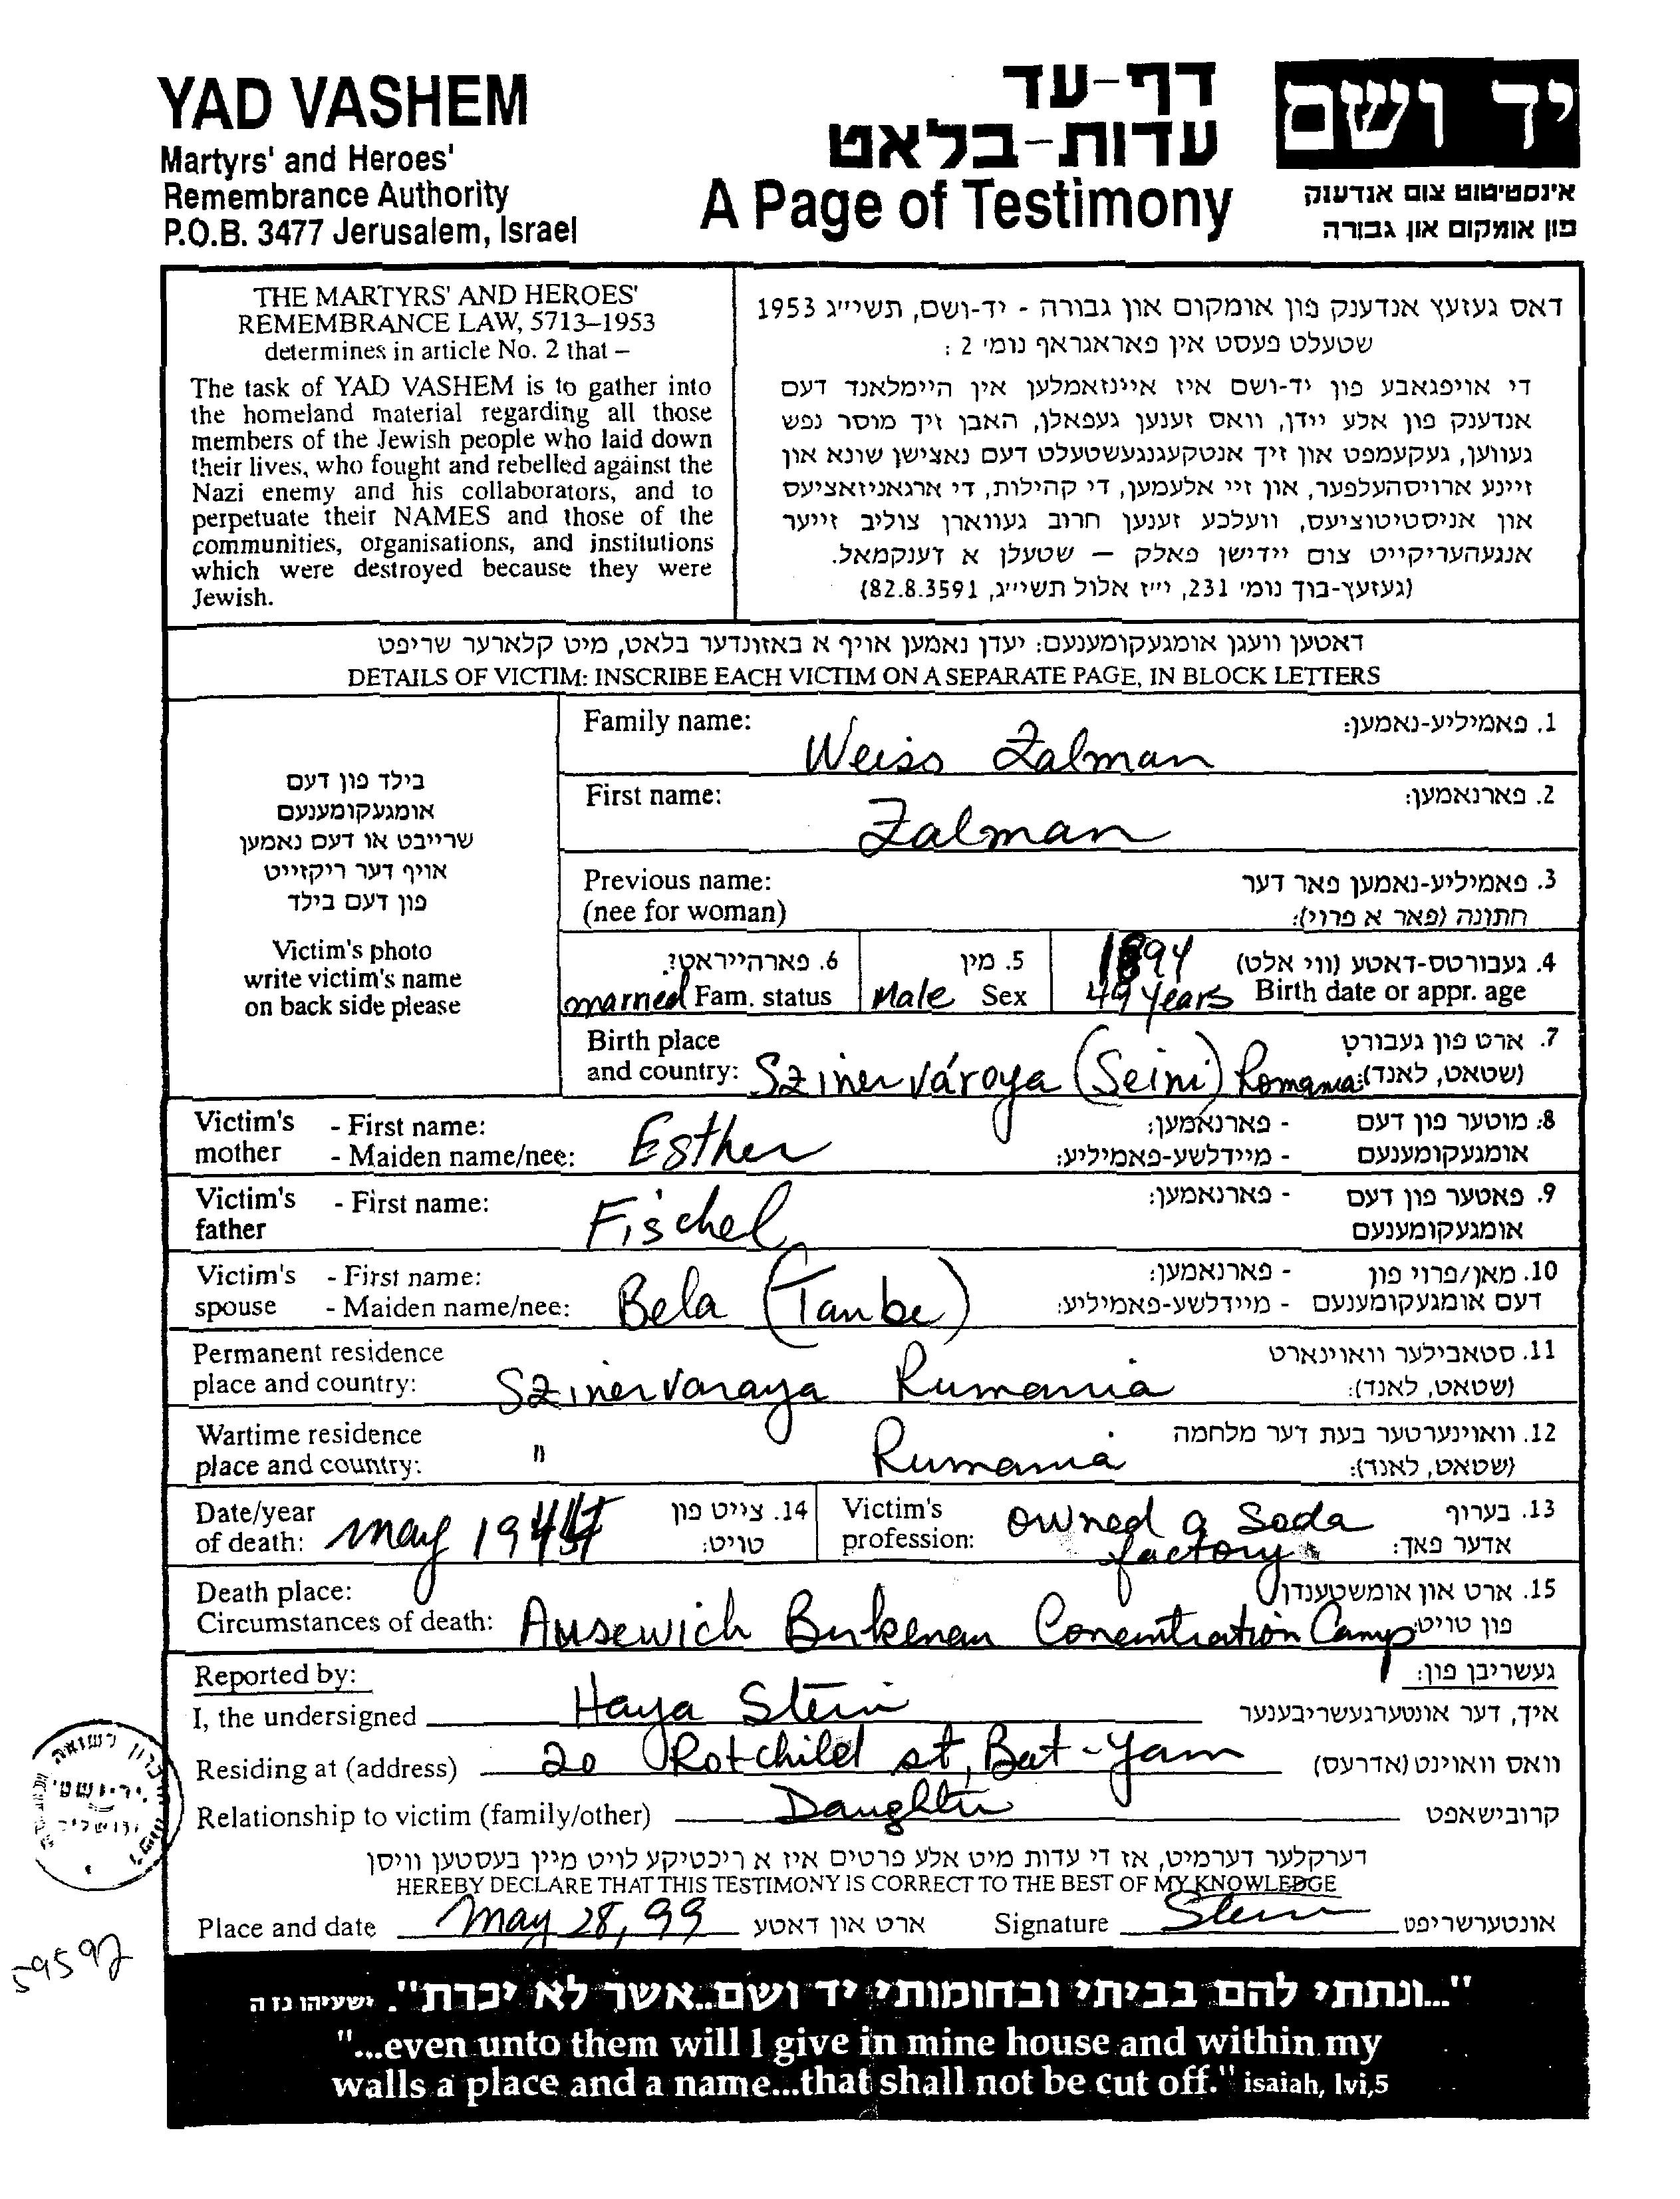 YAD VASHEM
Martyrs' and Heroes'
Remembrance Authority
P.O.B. 3477 Jerusalem, Israel
דף-עד
עדות-בלאט
A Page of Testimony
יד ושם
אינסטיטוט צום אנדענק
פון אומקום און גבורה
THE MARTYRS' AND HEROES'
REMEMBRANCE LAW, 5713–1953
determines in article No. 2 that –
The task of YAD VASHEM is to gather into
the homeland material regarding all those
members of the Jewish people who laid down
their lives, who fought and rebelled against the
Nazi enemy and his collaborators, and to
perpetuate their NAMES and those of the
communities, organisations, and institutions
which were destroyed because they were
Jewish.
דאס געזעץ אנדענק פון אומקום און גבורה - יד-ושם, תשי״ג 1953
שטעלט פעסט אין פאראגראף נומי 2 :
די אויפגאבע פון יד-ושם איז איינזאמלען אין היימלאנד דעם
אנדענק פון אלע יידן, וואס זענען געפאלן, האבן זיך מוסר נפש
געווען, געקעמפט און זיך אנטקעגנגעשטעלט דעם נאצישן שונא און
זיינע ארויסהעלפער, און זיי אלעמען, די קהילות, די ארגאניזאציעס
און אניסטיטוציעס, וועלכע זענען חרוב געווארן צוליב זייער
אנגעהעריקייט צום יידישן פאלק – שטעלן א דענקמאל.
(געזעץ-בוך נומי 231, י״ז אלול תשי״ג, 82.8.3591)
דאטען וועגן אומגעקומענעם: יעדן נאמען אויף א באזונדער בלאט, מיט קלארער שריפט
DETAILS OF VICTIM: INSCRIBE EACH VICTIM ON A SEPARATE PAGE, IN BLOCK LETTERS
בילד פון דעם
אומגעקומענעם
שרייבט או דעם נאמען
אויף דער ריקזייט
פון דעם בילד
Victim's photo
write victim's name
on back side please
Family name: Weiss Zalman 1. פאמיליע-נאמען:
First name: Zalman 2. פארנאמען:
Previous name: 3. פאמיליע-נאמען פאר דער
(nee for woman) חתונה (פאר א פרוי):
6. פארהייראט?: 5. מין 1894 4. געבורטס-דאטע (ווי אלט)
married Fam. status Male Sex 49 years Birth date or appr. age
Birth place 7. ארט פון געבורט
and country: Szinervároya (Seini) Romania (שטאט, לאנד):
Victim's - First name: - פארנאמען: 8. מוטער פון דעם
mother - Maiden name/nee: Esther - מיידלשע-פאמיליע: אומגעקומענעם
Victim's - First name: Fischel - פארנאמען: 9. פאטער פון דעם
father אומגעקומענעם
Victim's - First name: - פארנאמען: 10. מאן/פרוי פון
spouse - Maiden name/nee: Bela (Taube) - מיידלשע-פאמיליע: דעם אומגעקומענעם
Permanent residence 11. סטאבילער וואוינארט
place and country: Szinervaraya Rumania (שטאט, לאנד):
Wartime residence 12. וואוינערטער בעת דער מלחמה
place and country: " Rumania (שטאט, לאנד):
Date/year 14. צייט פון Victim's 13. בערוף
of death: may 1944 טויט: profession: owned a Soda אדער פאך:
factory
Death place: 15. ארט און אומשטענדן
Circumstances of death: Ausewich Birkenau Concentration Camp פון טויט:
Reported by: געשריבן פון:
I, the undersigned Haya Stein איך, דער אונטערגעשריבענער
Residing at (address) 20 Rotchild st, Bat-Yam וואס וואוינט (אדרעס)
Relationship to victim (family/other) Daughter קרובישאפט
דערקלער דערמיט, אז די עדות מיט אלע פרטים איז א ריכטיקע לויט מיין בעסטען וויסן
HEREBY DECLARE THAT THIS TESTIMONY IS CORRECT TO THE BEST OF MY KNOWLEDGE
Place and date May 28, 99 ארט און דאטע Signature Stein אונטערשריפט
59597
"...ונתתי להם בביתי ובחומותי יד ושם..אשר לא יכרת". ישעיהו נז ה
"...even unto them will I give in mine house and within my
walls a place and a name...that shall not be cut off." isaiah, lvi,5